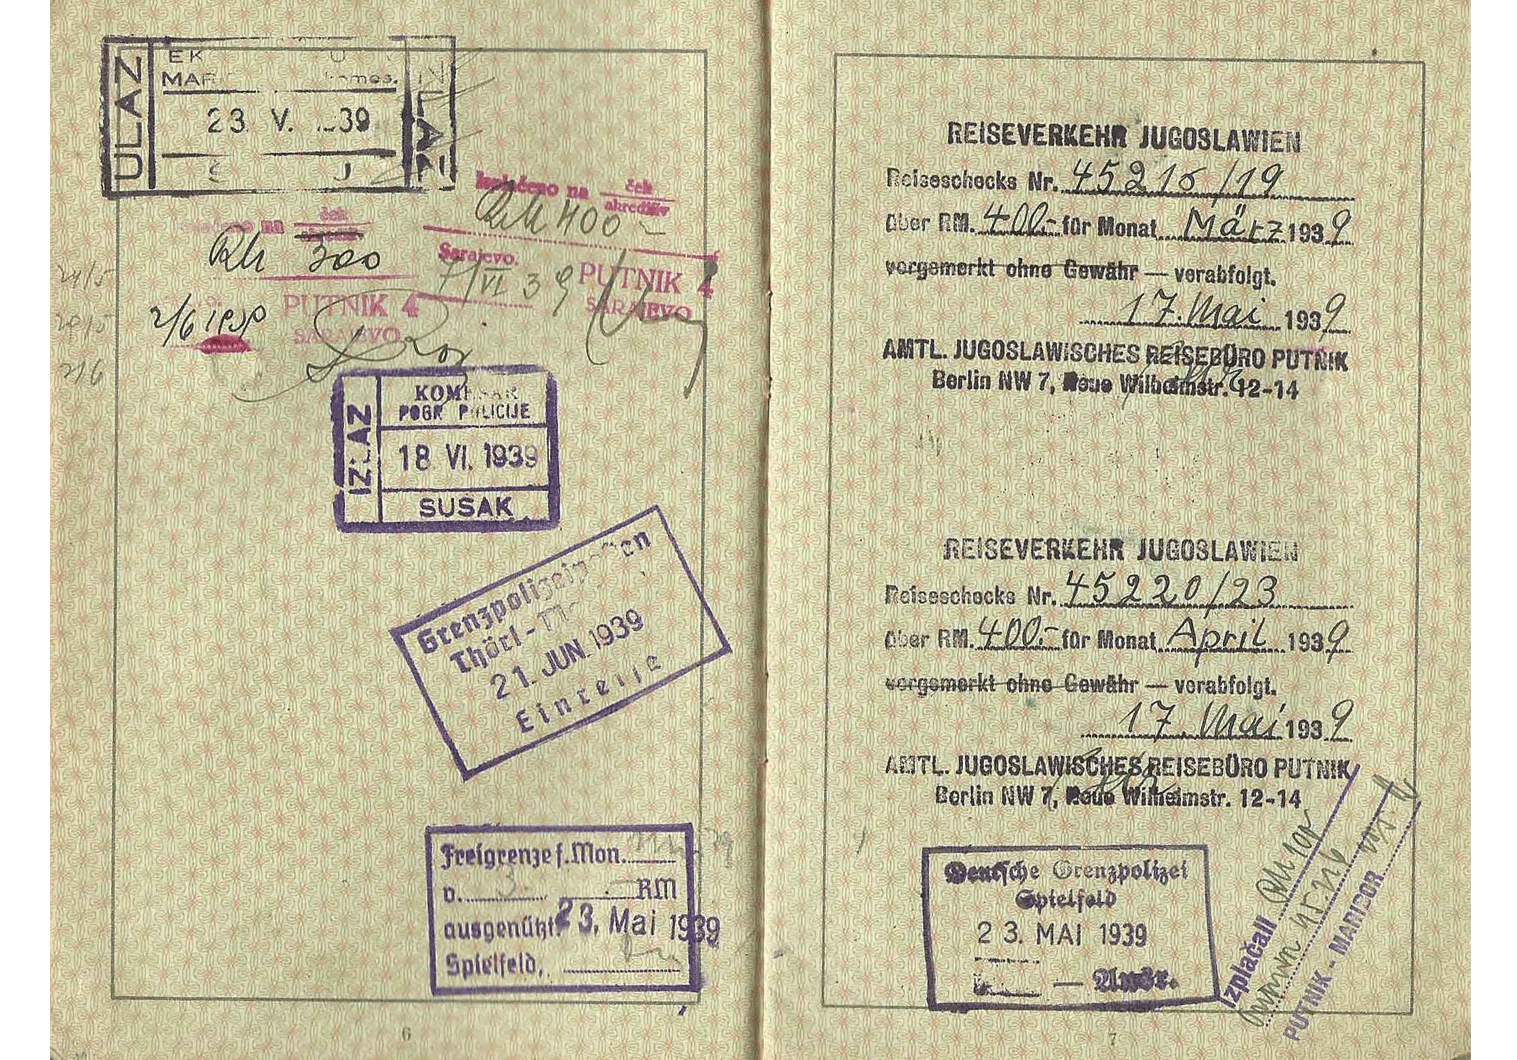 ULAZ
MAR
23 V. 39
Isplaćeno na ček
akreditiv
RM 400-
Sarajevo.
7/VI 39
PUTNIK 4
SARAJEVO
na ček
RM 300
2/6 1939
PUTNIK 4
SARAJEVO
24/5
29/5
2/6
IZLAZ
KOMESAR
POGR POLICIJE
18. VI. 1939
SUSAK
Grenzpolizei
Thörl - M
21. JUN. 1939
Einreise
Freigrenze f. Mon.
v. 3. RM
ausgenützt 23. Mai 1939
Spielfeld,
6
REISEVERKEHR JUGOSLAWIEN
Reiseschecks Nr. 45215/19
über RM. 400.- für Monat März 1939
vorgemerkt ohne Gewähr — verabfolgt.
17. Mai 1939
AMTL. JUGOSLAWISCHES REISEBÜRO PUTNIK
Berlin NW 7, Neue Wilhelmstr. 12-14
REISEVERKEHR JUGOSLAWIEN
Reiseschecks Nr. 45220/23
über RM. 400.- für Monat April 1939
vorgemerkt ohne Gewähr — verabfolgt.
17. Mai 1939
AMTL. JUGOSLAWISCHES REISEBÜRO PUTNIK
Berlin NW 7, Neue Wilhelmstr. 12-14
Deutsche Grenzpolizei
Spielfeld
23. MAI 1939
Izplačali
PUTNIK - MARIBOR
7